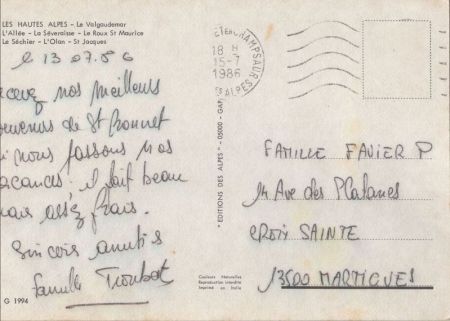 LES HAUTES ALPES - Le Valgaudemar
L'Allée - La Séveraisse - Le Roux St Maurice
Le Séchier - L'Olan - St Jacques
le 13.07.86
ecevez nos meilleurs
ouvenirs de St Bonnet
ù nous passons nos
acances; il fait beau
mais assez frais.
Sincères amitiés
Famille Troubat
G 1994
"EDITIONS DES ALPES" - 05000 - GAP
Couleurs Naturelles
Reproduction interdite
Imprimé en Italie
CHAMPSAUR
18 H
15-7
1986
ALPES
FAMILLE FAVIER P
14 Ave des Platanes
CROIX SAINTE
13500 MARTIGUES